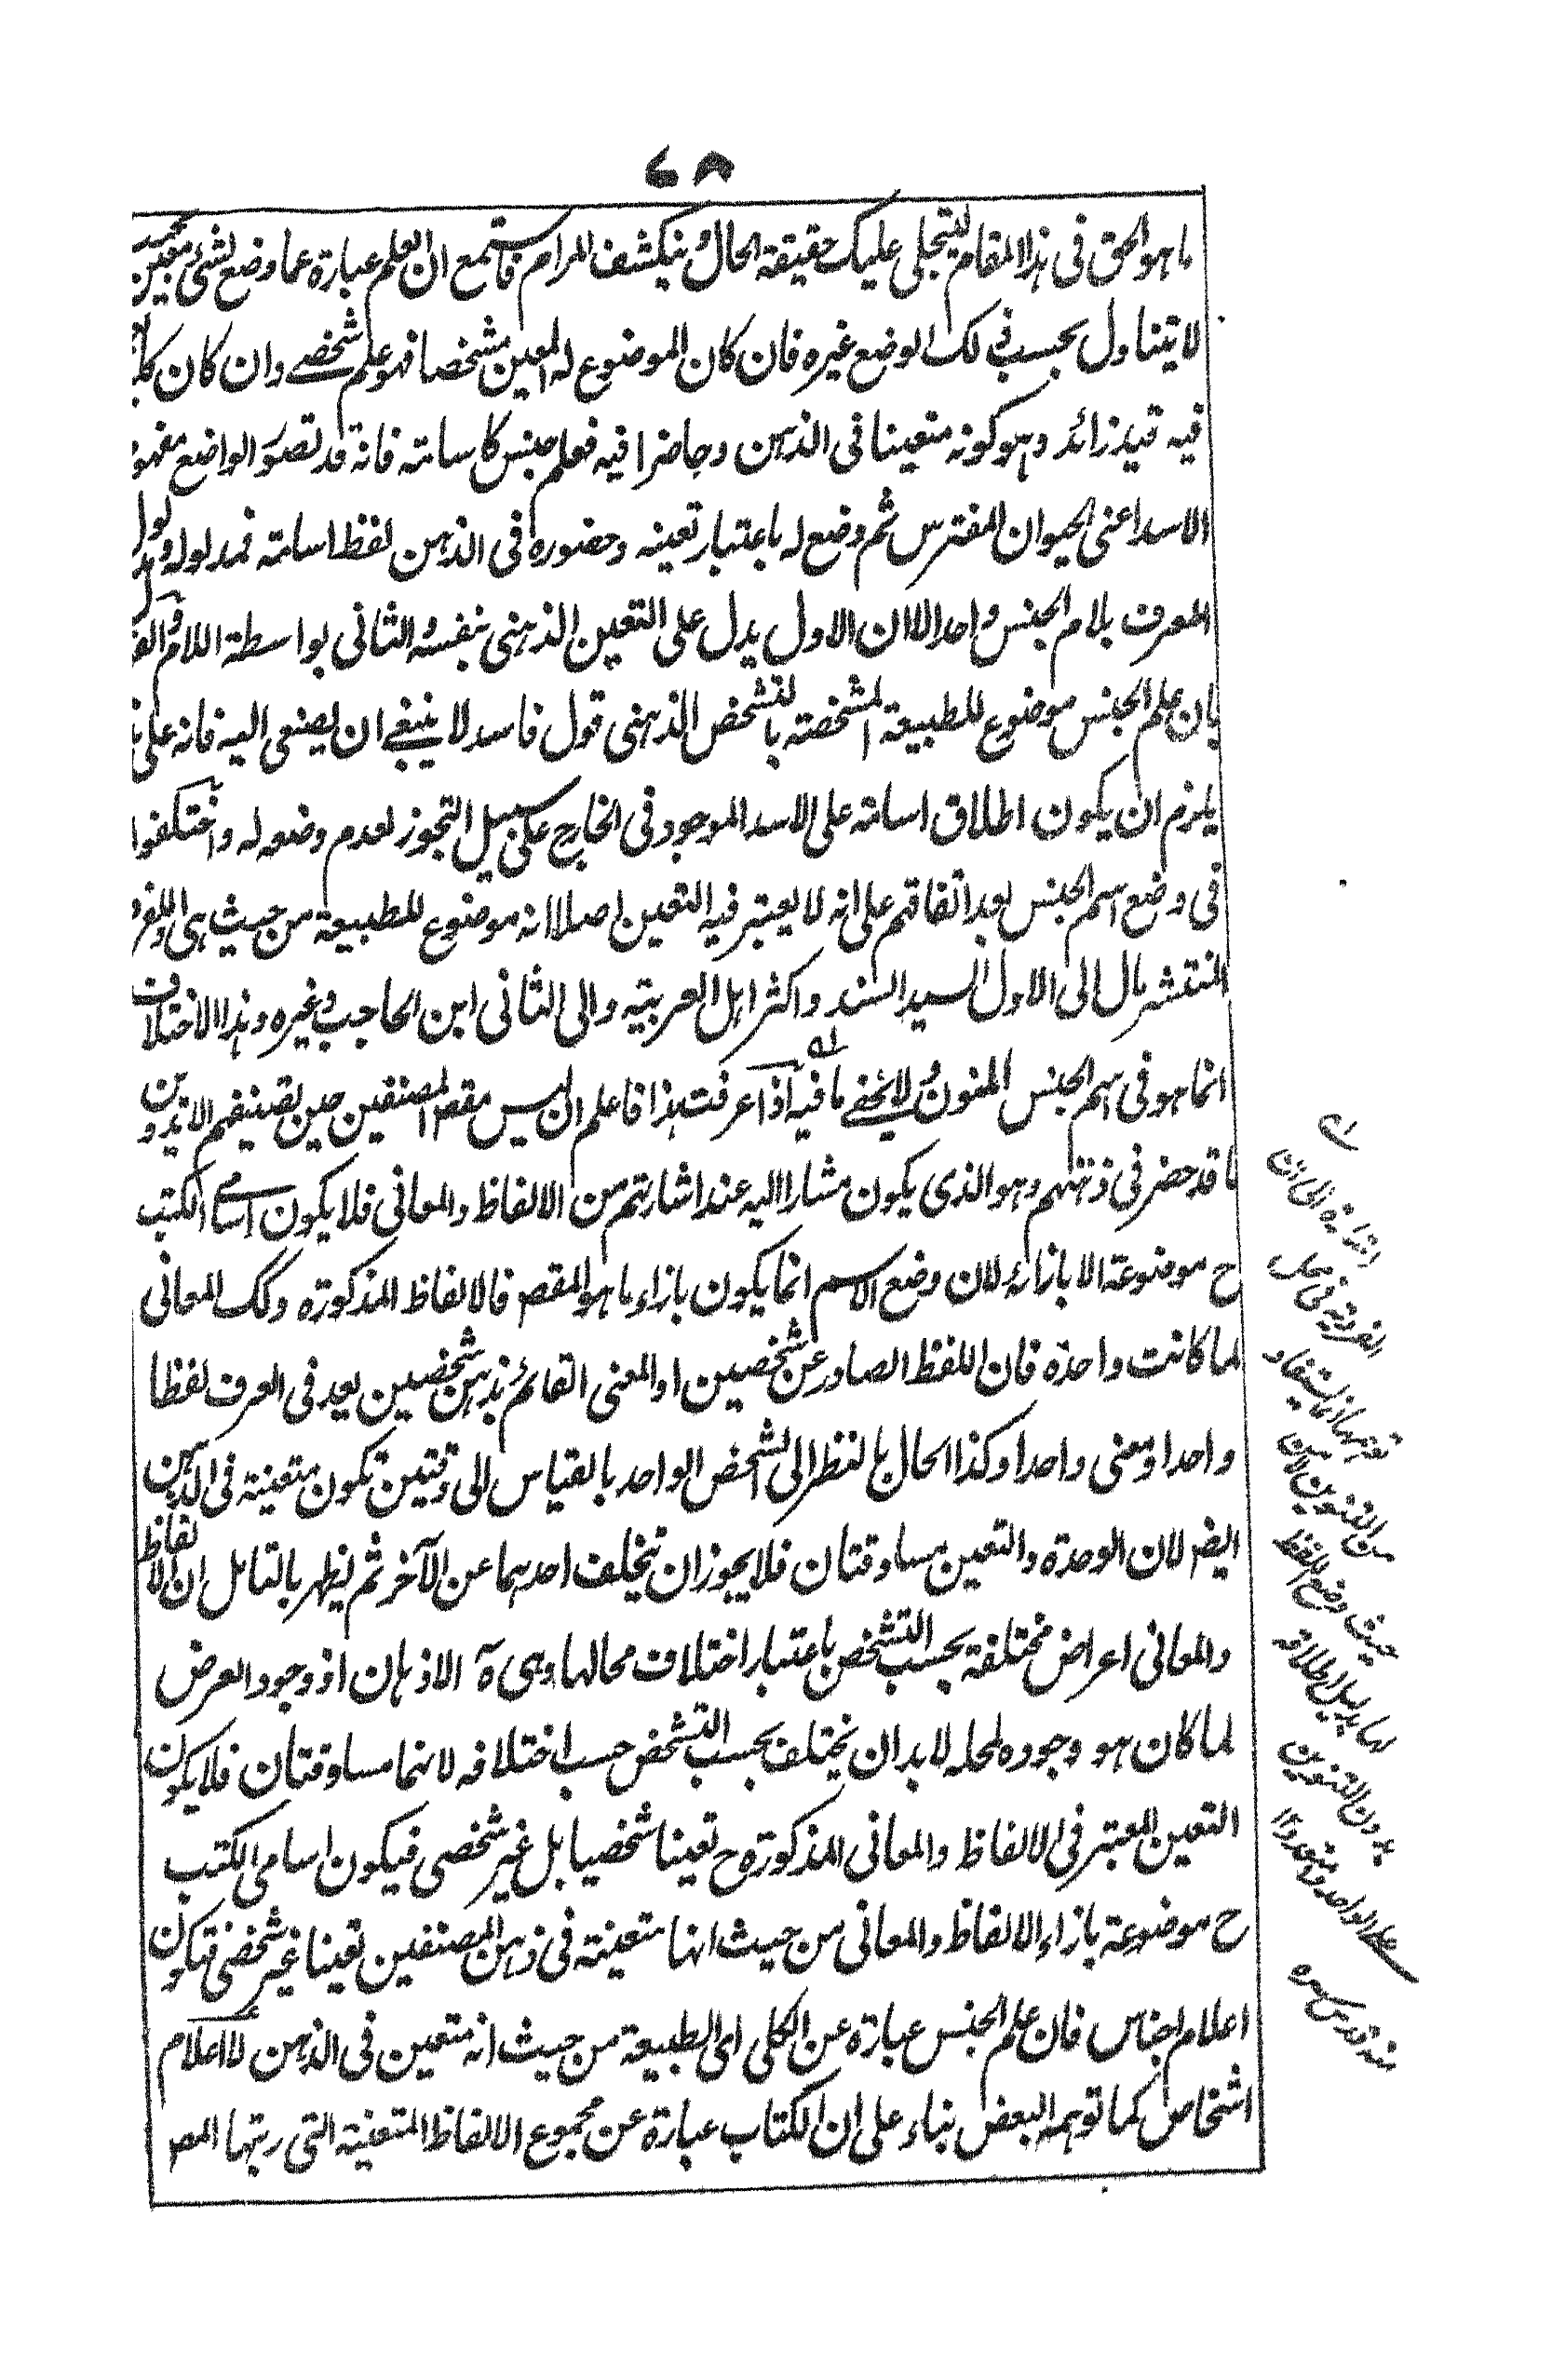 ٧٨
ما هو الحق فى هذا المقام ليتجلى عليك حقيقة الحال وينكشف المرام فاستمع ان العلم عبارة عما وضع لشئ معين
لا يتناول بحسب ذلك الوضع غيره فان كان الموضوع له المعين مشخصا فهو علم شخصے وان كان
فيه قيد زائد وهو كونه متعينا فى الذهن وحاضرا فيه فعلم جنس كاسامة فانه قد تصور الواضع مفهو
الاسد اعنى الحيوان المفترس ثم وضع له باعتبار تعينه وحضوره فى الذهن لفظ اسامة فمدلوله
المعرف بلام الجنس واحد الا ان الاول يدل على التعين الذهنى بنفسه والثانى بواسطة اللام
بان علم الجنس موضوع للطبيعة المشخصة بالتشخص الذهنى قول فاسد لا ينبغے ان يصغى اليه فانه على
يلزم ان يكون اطلاق اسامة على الاسد الموجود فى الخارج على سبيل التجوز لعدم وضعه له واختلفوا
فى وضع اسم الجنس بعد اتفاقهم على انه لا يعتبر فيه التعين اصلا انه موضوع للطبيعة من حيث هى
المنتشر مال الى الاول السيد السند واكثر اهل العربية والى الثانى ابن الحاجب وغيره وهذا الاختلاف
انما هو فى اسم الجنس المنون ولا يخفے ما فيه اذا عرفت هذا فاعلم ان ليس مقصو المصنفين حين تصنيفهم الا تدوين
ما قد حضر فى ذهنهم وهو الذى يكون مشارا اليه عند اشارتهم من الالفاظ والمعانى فلا يكون اسامے الكتب
ح موضوعة الا بازائه لان وضع الاسم انما يكون بازاء ما هو المقصو فالالفاظ المذكورة وكك المعانى
لما كانت واحدة فان اللفظ الصادر عن شخصين او المعنى القائم بذهن شخصين يعد فى العرف لفظا
واحدا ومعنى واحدا وكذا الحال بالنظر الى الشخص الواحد بالقياس الى وقتين تكون متعينة فى الذهن
ايض لان الوحدة والتعين مساوقتان فلا يجوز ان يتخلف احدهما عن الآخر ثم يظهر بالتامل ان الالفاظ
والمعانى اعراض مختلفة بحسب التشخص باعتبار اختلاف محالها وهى ه الاذهان اذ وجود العرض
لما كان هو وجوده لمحله لا بد ان يختلف بحسب التشخص حسب اختلافه لانهما مساوقتان فلا يكون
التعين المعتبر فى الالفاظ والمعانى المذكورة ح تعينا شخصيا بل غير شخصى فيكون اسامى الكتب
ح موضوعة بازاء الالفاظ والمعانى من حيث انها متعينة فى ذهن المصنفين تعينا غير شخصى فتكون
اعلام اجناس فان علم الجنس عبارة عن الكلى اى الطبيعة من حيث انه متعين فى الذهن لا اعلام
اشخاص كما توهمه البعض بناء على ان الكتاب عبارة عن مجموع الالفاظ المتعينة التى رتبها المص
اشارة الى ان
الفردية فى
انما يستفاد
من التنوين
حيث وضع اللفظ
لها بدليل اطلاقه
بدون التنوين
على الواحد
منه قدس سره